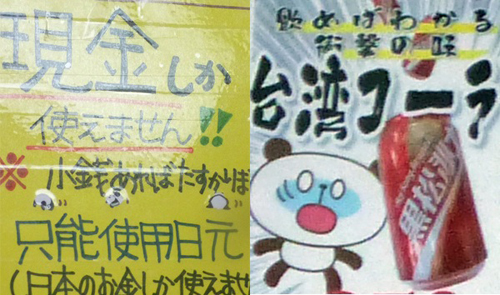 現金しか
使えません!!
※ 小銭あればたすかりま
只能使用日元
(日本のお金しか使えませ
飲めばわかる
衝撃の味
台湾コーラ